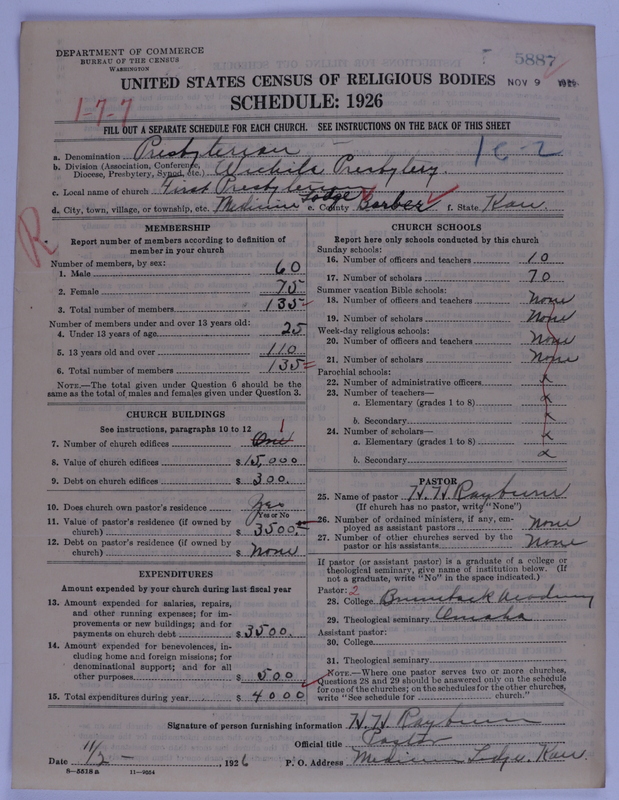 DEPARTMENT OF COMMERCE
BUREAU OF THE CENSUS
WASHINGTON
5887
UNITED STATES CENSUS OF RELIGIOUS BODIES
NOV 9 1926
SCHEDULE: 1926
1-7-7
FILL OUT A SEPARATE SCHEDULE FOR EACH CHURCH. SEE INSTRUCTIONS ON THE BACK OF THIS SHEET
a. Denomination Presbyterian
b. Division (Association, Conference, Diocese, Presbytery, Synod, etc.) Wichita Presbytery.
c. Local name of church First Presbyterian
d. City, town, village, or township, etc. Medicine Lodge e. County Barber f. State Kan
R
MEMBERSHIP
Report number of members according to definition of
member in your church
Number of members, by sex:
1. Male 60
2. Female 75
3. Total number of members 135
Number of members under and over 13 years old:
4. Under 13 years of age 25
5. 13 years old and over 110
6. Total number of members 135
NOTE.—The total given under Question 6 should be
the same as the total of males and females given under Question 3.
CHURCH BUILDINGS
See instructions, paragraphs 10 to 12
7. Number of church edifices One 1
8. Value of church edifices $ 15,000
9. Debt on church edifices $ 300.
10. Does church own pastor's residence Yes
Yes or No
11. Value of pastor's residence (if owned by
church) $ 3500.
12. Debt on pastor's residence (if owned by
church) $ None
EXPENDITURES
Amount expended by your church during last fiscal year
13. Amount expended for salaries, repairs,
and other running expenses; for im-
provements or new buildings; and for
payments on church debt $ 3500.
14. Amount expended for benevolences, in-
cluding home and foreign missions; for
denominational support; and for all
other purposes $ 500
15. Total expenditures during year $ 4000
CHURCH SCHOOLS
Report here only schools conducted by this church
Sunday schools:
16. Number of officers and teachers 10
17. Number of scholars 70
Summer vacation Bible schools:
18. Number of officers and teachers None
19. Number of scholars None
Week-day religious schools:
20. Number of officers and teachers None
21. Number of scholars None
Parochial schools:
22. Number of administrative officers x
23. Number of teachers—
a. Elementary (grades 1 to 8) x
b. Secondary x
24. Number of scholars—
a. Elementary (grades 1 to 8) x
b. Secondary x
PASTOR
25. Name of pastor H. H. Rayburn
(If church has no pastor, write "None")
26. Number of ordained ministers, if any, em-
ployed as assistant pastors None
27. Number of other churches served by the
pastor or his assistants None
If pastor (or assistant pastor) is a graduate of a college or
theological seminary, give name of institution below. (If
not a graduate, write "No" in the space indicated.)
Pastor: 2
28. College Academy
29. Theological seminary Omaha
Assistant pastor:
30. College
31. Theological seminary
NOTE.—Where one pastor serves two or more churches,
Questions 28 and 29 should be answered only on the schedule
for one of the churches; on the schedules for the other churches,
write "See schedule for church."
Signature of person furnishing information H. H. Rayburn
Official title Pastor
Date 11/2 –, 1926 P. O. Address Medicine Lodge, Kan
8—5518 a 11—9254